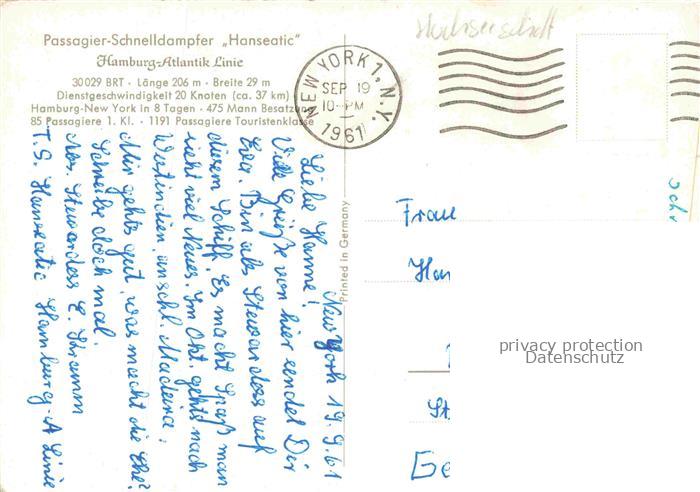 Passagier-Schnelldampfer „Hanseatic"
Hamburg-Atlantik Linie
30029 BRT · Länge 206 m · Breite 29 m
Dienstgeschwindigkeit 20 Knoten (ca. 37 km)
Hamburg-New York in 8 Tagen · 475 Mann Besatzung
85 Passagiere 1. Kl. · 1191 Passagiere Touristenklasse
NEW YORK 1, N.Y.
SEP 19
10-PM
1961
New York 19.9.61
Liebe Hanne!
Viele Grüße von hier sendet Dir
Eva. Bin als Stewardess auf
diesem Schiff. Es macht Spaß man
sieht viel Neues. Im Okt. gehts nach
Westindien, anschl. Madeira.
Mir gehts gut, was macht die Ehe?
Schreibe doch mal.
Abs. Stewardess E.
T.S. Hanseatic Hamburg-A Linie
Printed in Germany
Frau
privacy protection
Datenschutz